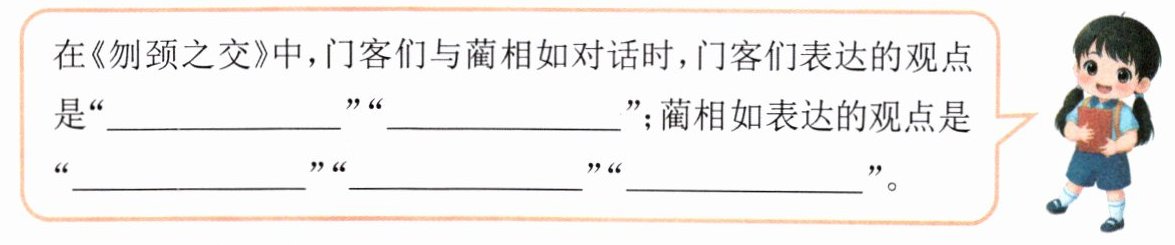 在《刎颈之交》中，门客们与蔺相如对话时，门客们表达的观点
是“____________”“____________”；蔺相如表达的观点是
“____________”“____________”“____________”。